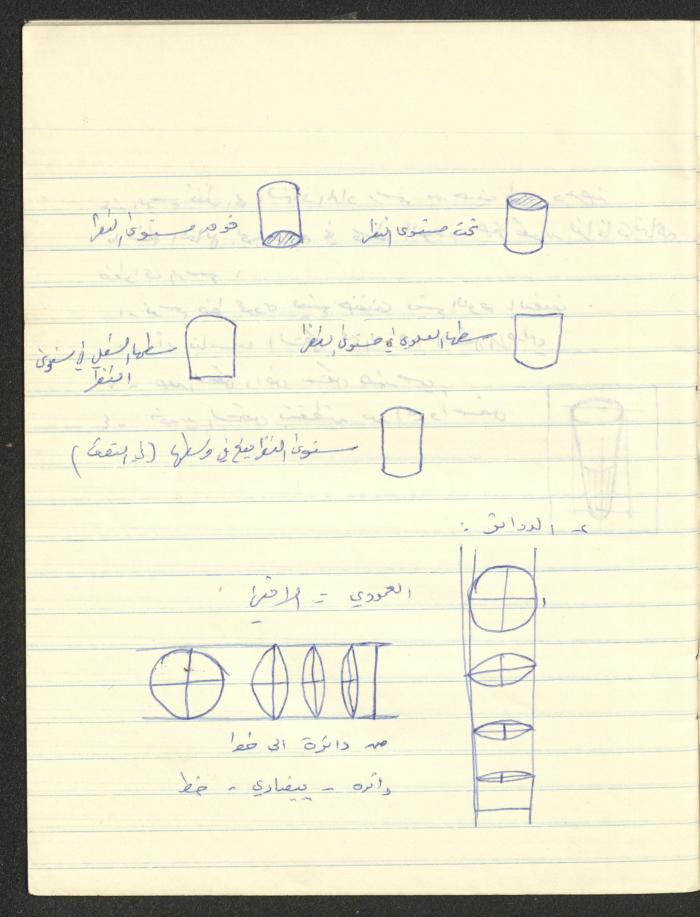 تحت مستوى النظر
فوق مستوى النظر
سطحها العلوي في مستوى النظر
سطحها السفلي في مستوى
النظر
مستوى النظر يقع في وسطها (
٢- الدوائر :
العمودي -
من دائرة الى خط
دائره - بيضاوي - خط